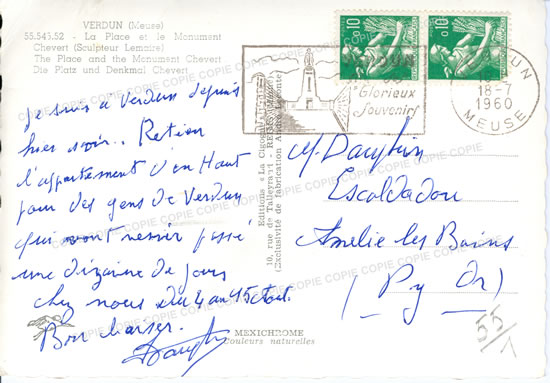 VERDUN (Meuse)
55.545.52 - La Place et le Monument
Chevert (Sculpteur Lemaire)
The Place and the Monument Chevert
Die Platz und Denkmal Chevert
Je suis à Verdun depuis
hier soir.. Retien
l'appartement d'en Haut
pour des gens de Verdun
qui vont venir passé
une dizaine de jours
chez nous du 4 au 15 août.
Bon baiser.
Dauphin
Editions "La Cigogne"
10, rue de Talleyrand - REIMS
(Exclusivité de fabrication
MEXICHROME
Couleurs naturelles
0,10
0,10
VERDUN
SES
Glorieux
Souvenirs
VERDUN
18-7
1960
MEUSE
M. Dauphin
Escaldadou
Amélie les Bains
(Py Or)
55/1
COPIE COPIE COPIE COPIE COPIE COPIE